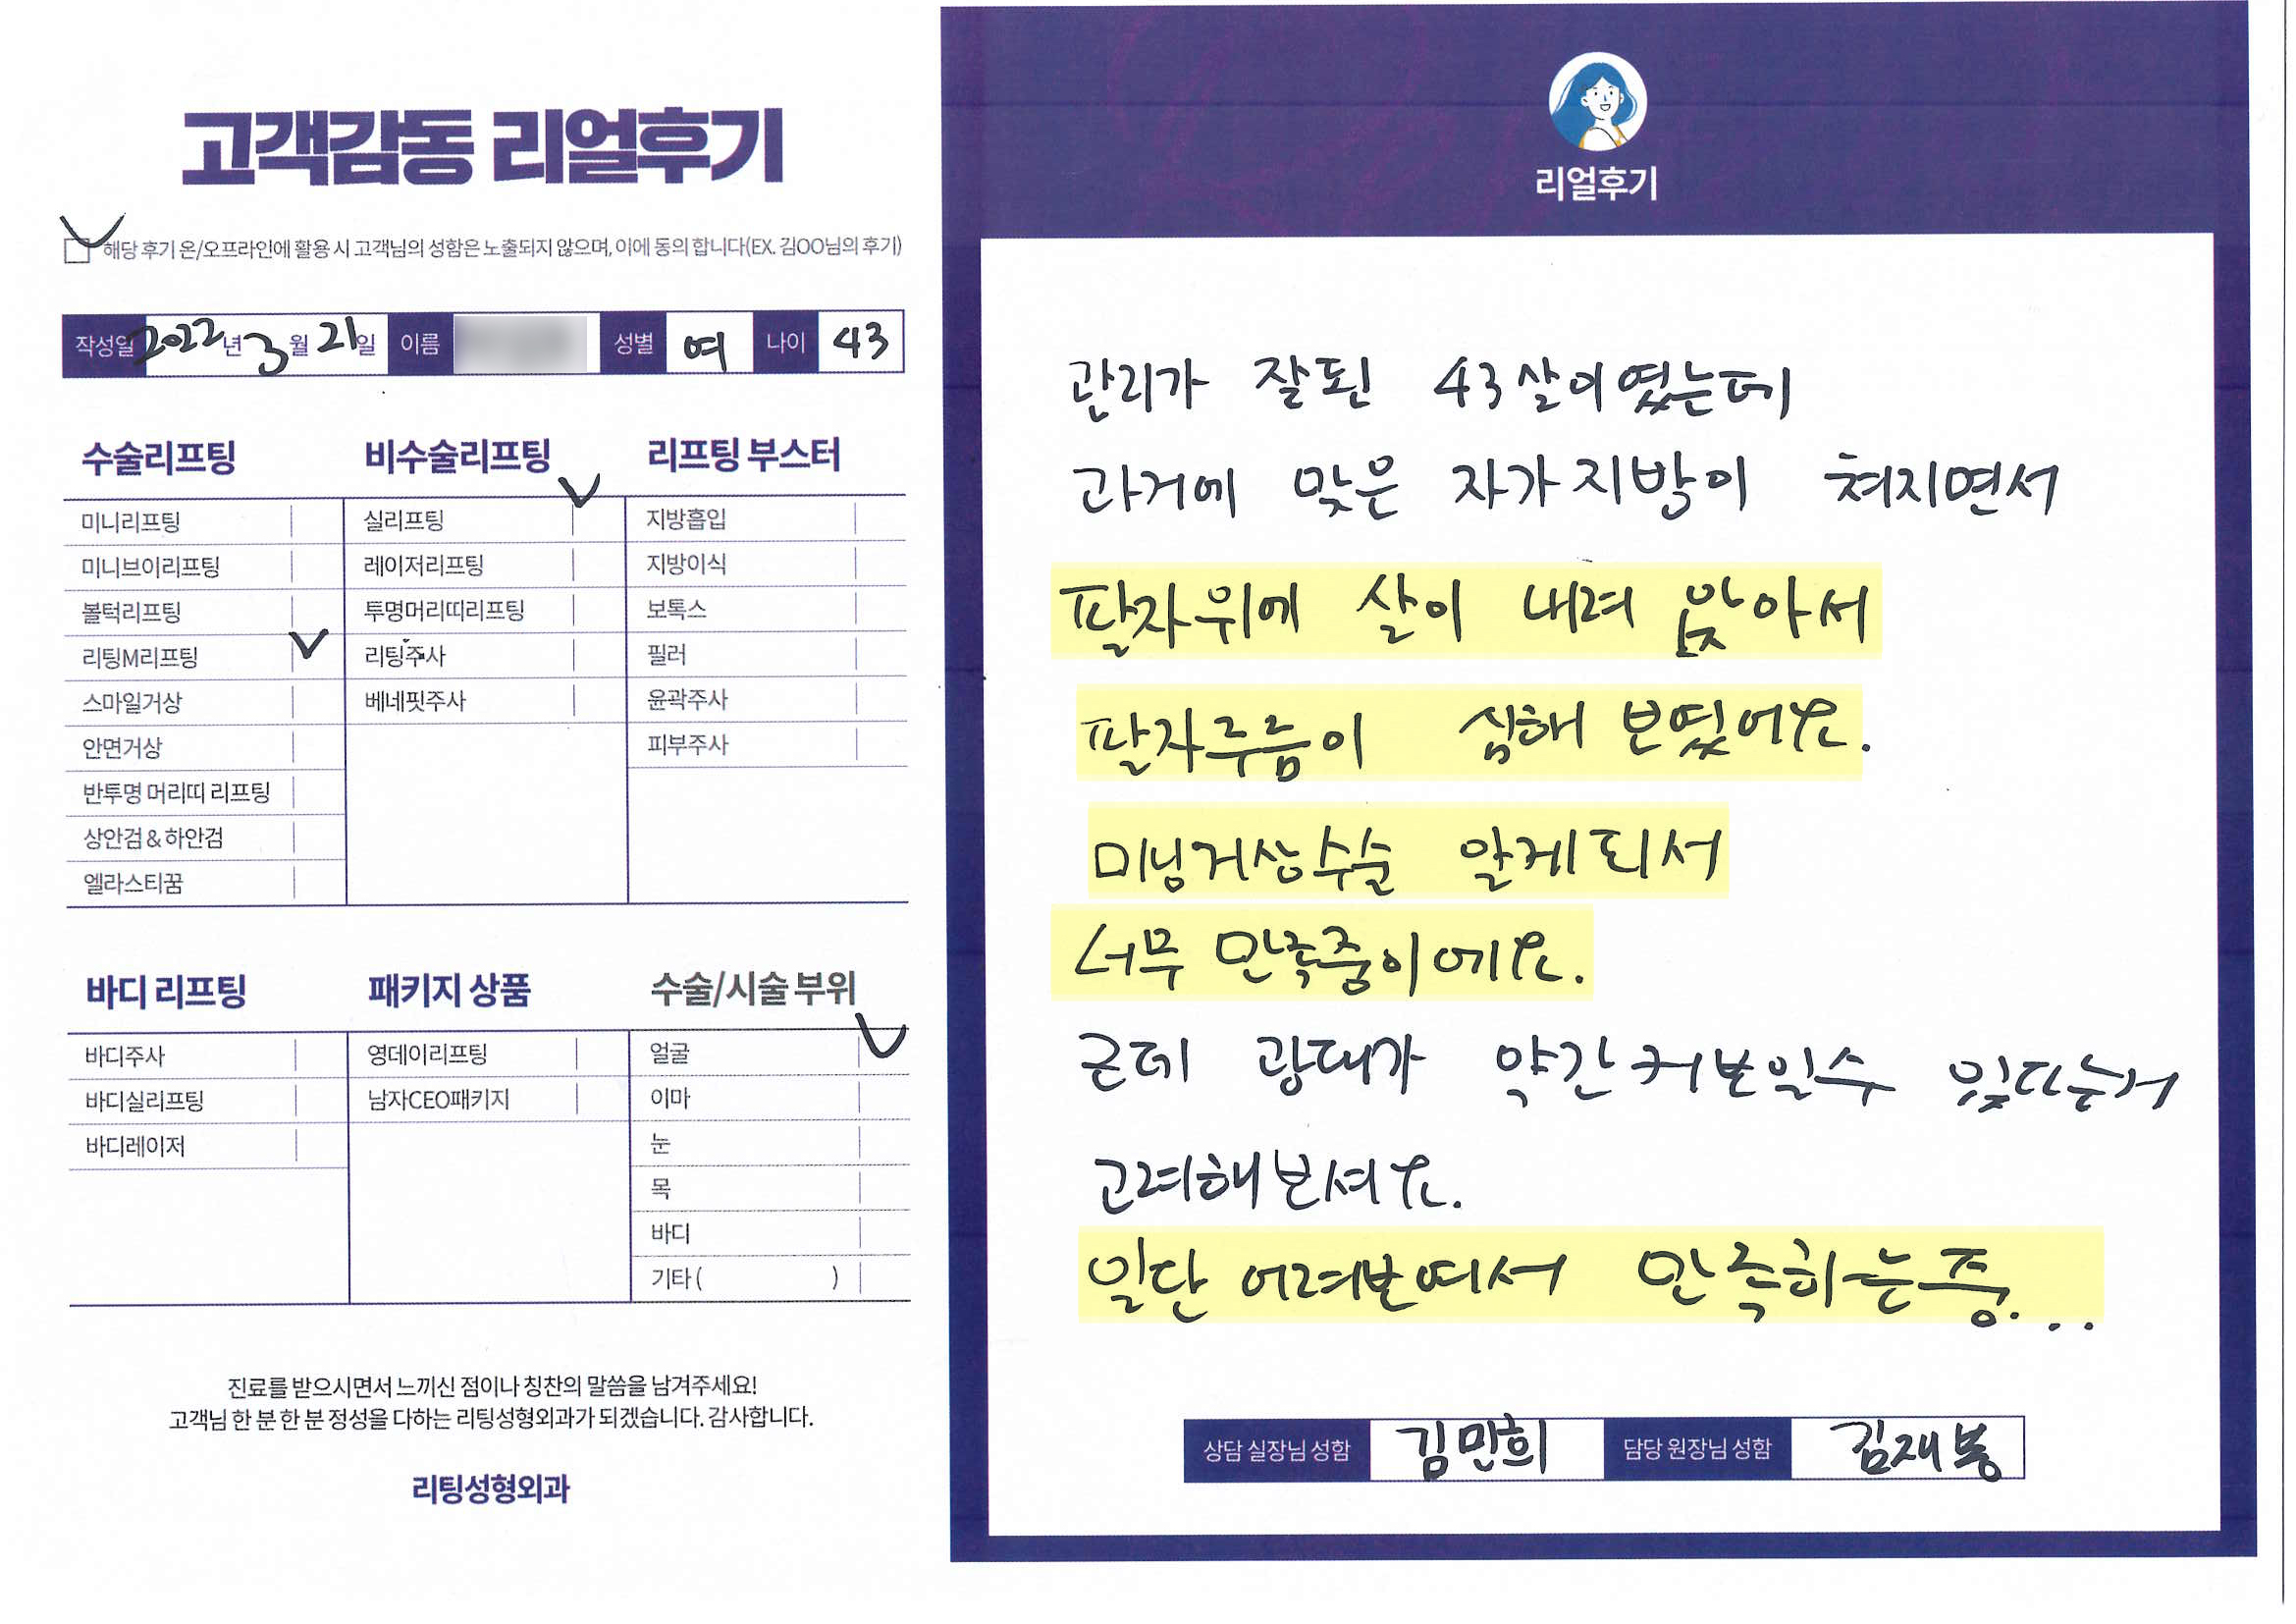 고객감동 리얼후기
해당 후기 온/오프라인에 활용 시 고객님의 성함은 노출되지 않으며, 이에 동의 합니다(EX. 김OO님의 후기)
작성일 2022년 3월 21일 이름 성별 여 나이 43
수술리프팅
미니리프팅
미니브이리프팅
볼턱리프팅
리팅M리프팅
스마일거상
안면거상
반투명 머리띠 리프팅
상안검 & 하안검
엘라스티꿈
비수술리프팅
실리프팅
레이저리프팅
투명머리띠리프팅
리팅주사
베네핏주사
리프팅 부스터
지방흡입
지방이식
보톡스
필러
윤곽주사
피부주사
바디 리프팅
바디주사
바디실리프팅
바디레이저
패키지 상품
영데이리프팅
남자CEO패키지
수술/시술 부위
얼굴
이마
눈
목
바디
기타 ( )
진료를 받으시면서 느끼신 점이나 칭찬의 말씀을 남겨주세요!
고객님 한 분 한 분 정성을 다하는 리팅성형외과가 되겠습니다. 감사합니다.
리팅성형외과
리얼후기
관리가 잘된 43살이였는데
과거에 맞은 자가지방이 쳐지면서
팔자위에 살이 내려 앉아서
팔자주름이 심해 보였어요.
미닝거상수술 알게되서
너무 만족중이에요.
근데 광대가 약간커보일수 있다는거
고려해보셔요.
일단 어려보여서 만족하는중...
상담 실장님 성함 김민희 담당 원장님 성함 김재봉